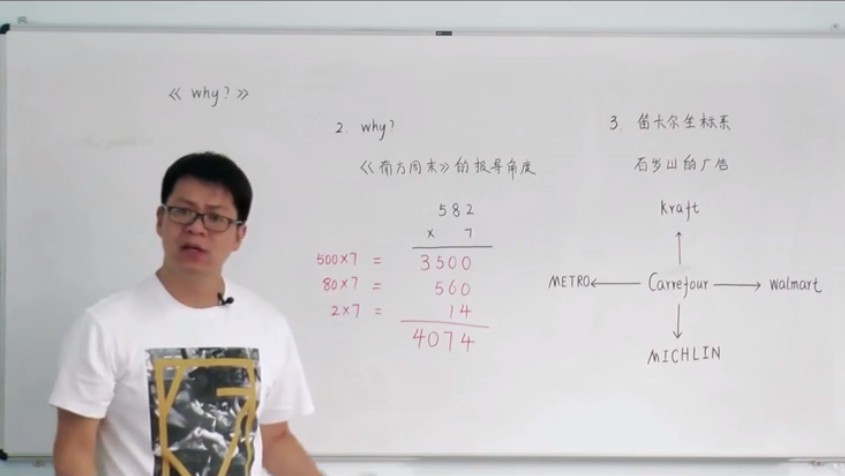 《 why? 》
2. why?
《南方周末》的报导角度
582
× 7
500×7 = 3500
80×7 = 560
2×7 = 14
4074
3 笛卡尔坐标系
石岁山的广告
kraft
METRO ← Carrefour → Walmart
MICHLIN